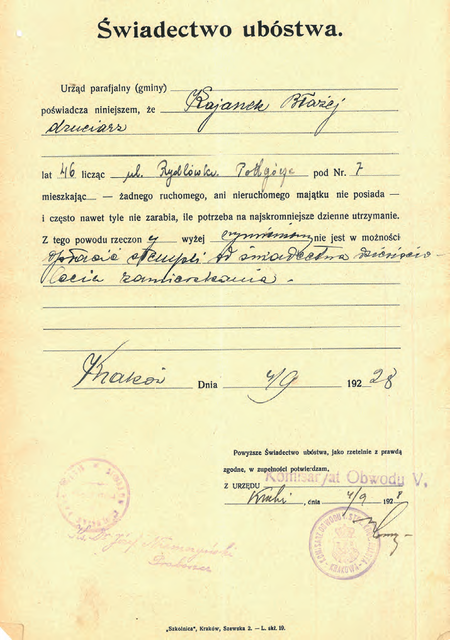 Świadectwo ubóstwa.
Urząd parafjalny (gminy)
poświadcza niniejszem, że Kajanek Błażej
druciarz
lat 46 licząc ul. Rydlówka Podgórze pod Nr. 7
mieszkając — żadnego ruchomego, ani nieruchomego majątku nie posiada —
i często nawet tyle nie zarabia, ile potrzeba na najskromniejsze dzienne utrzymanie.
Z tego powodu rzeczony wyżej wymieniony nie jest w możności
stempli od świadectwa
zamieszkania.
Kraków Dnia 4/9 1928
Powyższe Świadectwo ubóstwa, jako rzetelnie z prawdą
zgodne, w zupełności potwierdzam.
Z URZĘDU Komisarjat Obwodu V,
Kraków, dnia 4/9 1928
Ks. Dr. Józef
„Szkolnica", Kraków, Szewska 2. – L. skł. 19.